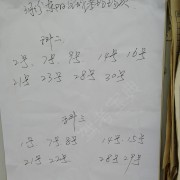 科二
2号、7号、9号 14号 16号
21号 23号 28号 30号
科三
1号 7号 8号 14号 15号
21号 22号 28号 29号